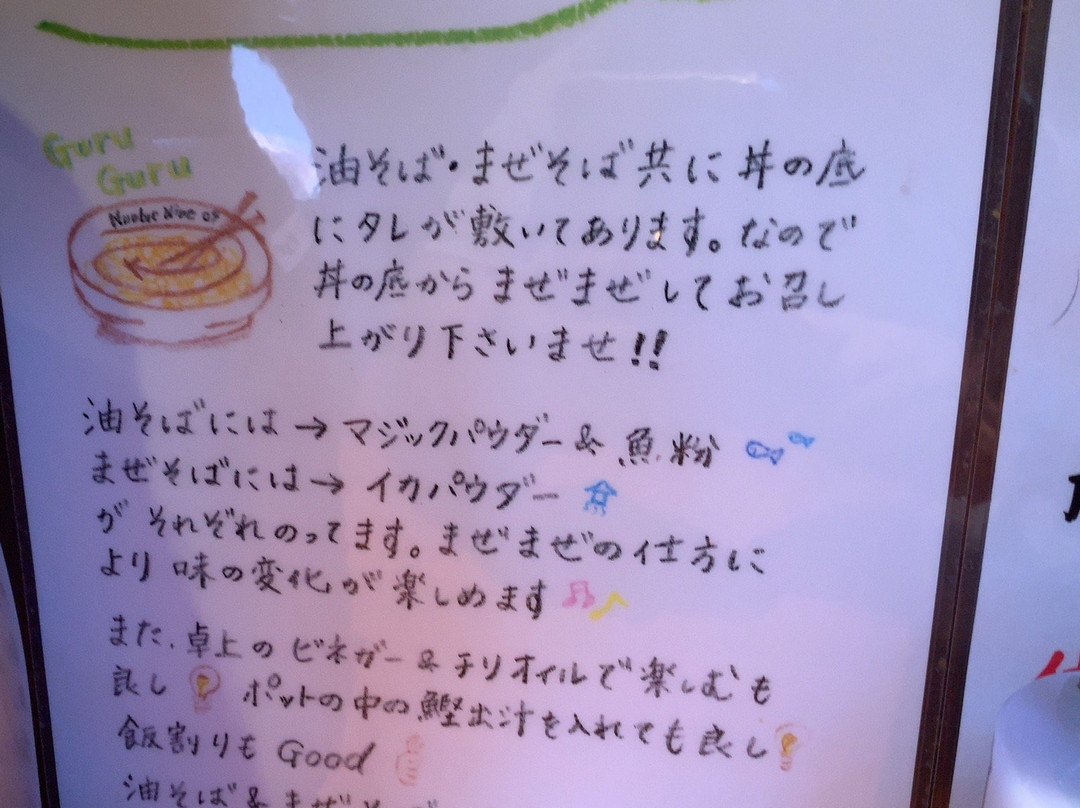 Guru
Guru
油そば・まぜそば共に丼の底
にタレが敷いてあります。なので
丼の底からまぜまぜしてお召し
上がり下さいませ!!
油そばには→マジックパウダー&魚粉
まぜそばには→イカパウダー
がそれぞれのってます。まぜまぜの仕方に
より味の変化が楽しめます
また、卓上のビネガー&チリオイルで楽しむも
良し ポットの中の鰹出汁を入れても良し
飯割りもGood
油そば&まぜそば